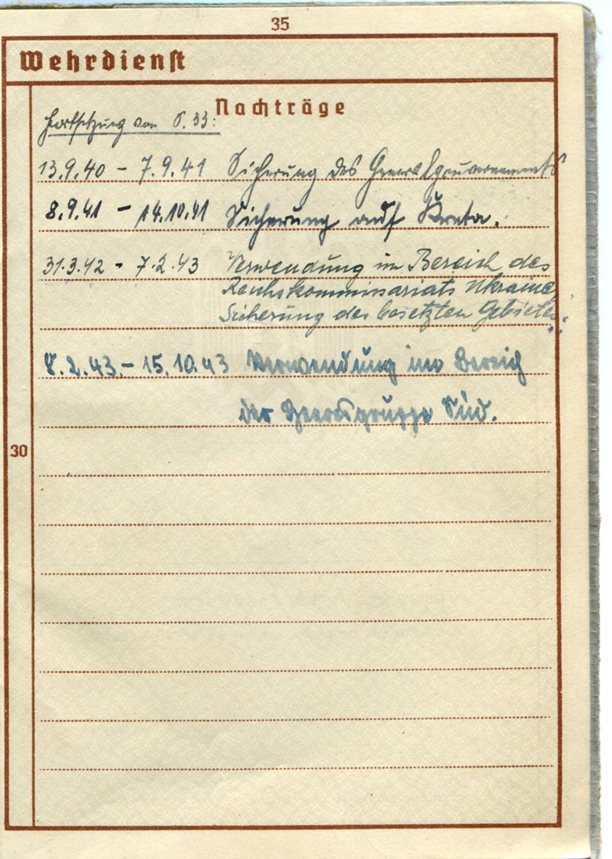 35
Wehrdienst
Nachträge
Fortsetzung von S. 33:
13.9.40 – 7.9.41 Sicherung des Generalgouvernements
8.9.41 – 14.10.41 Sicherung auf Kreta.
31.3.42 - 7.2.43 Verwendung im Bereich des
Reichskommissariats Ukraine
Sicherung des besetzten Gebietes
8.2.43.– 15.10.43 Verwendung im Bereich
der Heeresgruppe Süd.
30